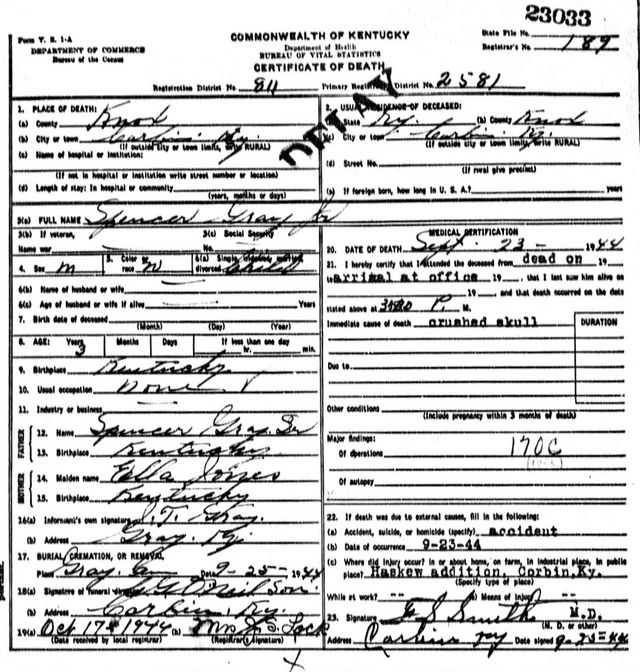 23033
Form V. S. 1-A
DEPARTMENT OF COMMERCE
Bureau of the Census
COMMONWEALTH OF KENTUCKY
Department of Health
BUREAU OF VITAL STATISTICS
CERTIFICATE OF DEATH
State File No.
Registrar's No. 189
Registration District No. 811 Primary Registration District No. 2581
DELAY
1. PLACE OF DEATH:
(a) County Knox
(b) City or town Corbin, Ky.
(If outside city or town limits, write RURAL)
(c) Name of hospital or institution:
(If not in hospital or institution write street number or location)
(d) Length of stay: In hospital or community
(years, months or days)
2. USUAL RESIDENCE OF DECEASED:
State Ky. (b) County Knox
(c) City or town Corbin Ky.
(If outside city or town limits, write RURAL)
(d) Street No.
(If rural give precinct)
(e) If foreign born, how long in U. S. A.? years
3(a) FULL NAME Spencer Gray Jr
3(b) If veteran,
Name war
3(c) Social Security
No.
4. Sex m 5. Color or race N 6(a) Single, widowed, married, divorced Child
6(b) Name of husband or wife
6(c) Age of husband or wife if alive Years
7. Birth date of deceased
(Month) (Day) (Year)
8. AGE: Years 3 Months Days If less than one day
hr. min.
9. Birthplace Kentucky
10. Usual occupation None
11. Industry or business
FATHER
12. Name Spencer Gray Sr
13. Birthplace Kentucky
MOTHER
14. Maiden name Ella Jones
15. Birthplace Kentucky
16(a) Informant's own signature T. Gray.
(b) Address Gray, Ky.
17. BURIAL, CREMATION, OR REMOVAL
Place Gray, Date 9-25- 1944
18(a) Signature of funeral director O'Neil Son
(b) Address Corbin, Ky.
19(a) Oct 17th 1944 (b) Mrs J. S. Lock
(Date received by local registrar) (Registrar's signature)
MEDICAL CERTIFICATION
20. DATE OF DEATH Sept. 23- 1944
21. I hereby certify that I attended the deceased from dead on
to arrival at office 19 , that I last saw him alive on
19 , and that death occurred on the date
stated above at P. M.
Immediate cause of death crushed skull
DURATION
Due to
Other conditions
(Include pregnancy within 3 months of death)
Major findings:
Of operations 170C
Of autopsy
22. If death was due to external causes, fill in the following:
(a) Accident, suicide, or homicide (specify) accident
(b) Date of occurrence 9-23-44
(c) Where did injury occur? in or about home, on farm, in industrial place, in public
place? Haskew addition, Corbin, Ky.
(Specify type of place)
While at work? (e) Means of injury
23. Signature Smith M.D.
(M. D. or other)
Address Corbin Ky Date signed 9-25-44